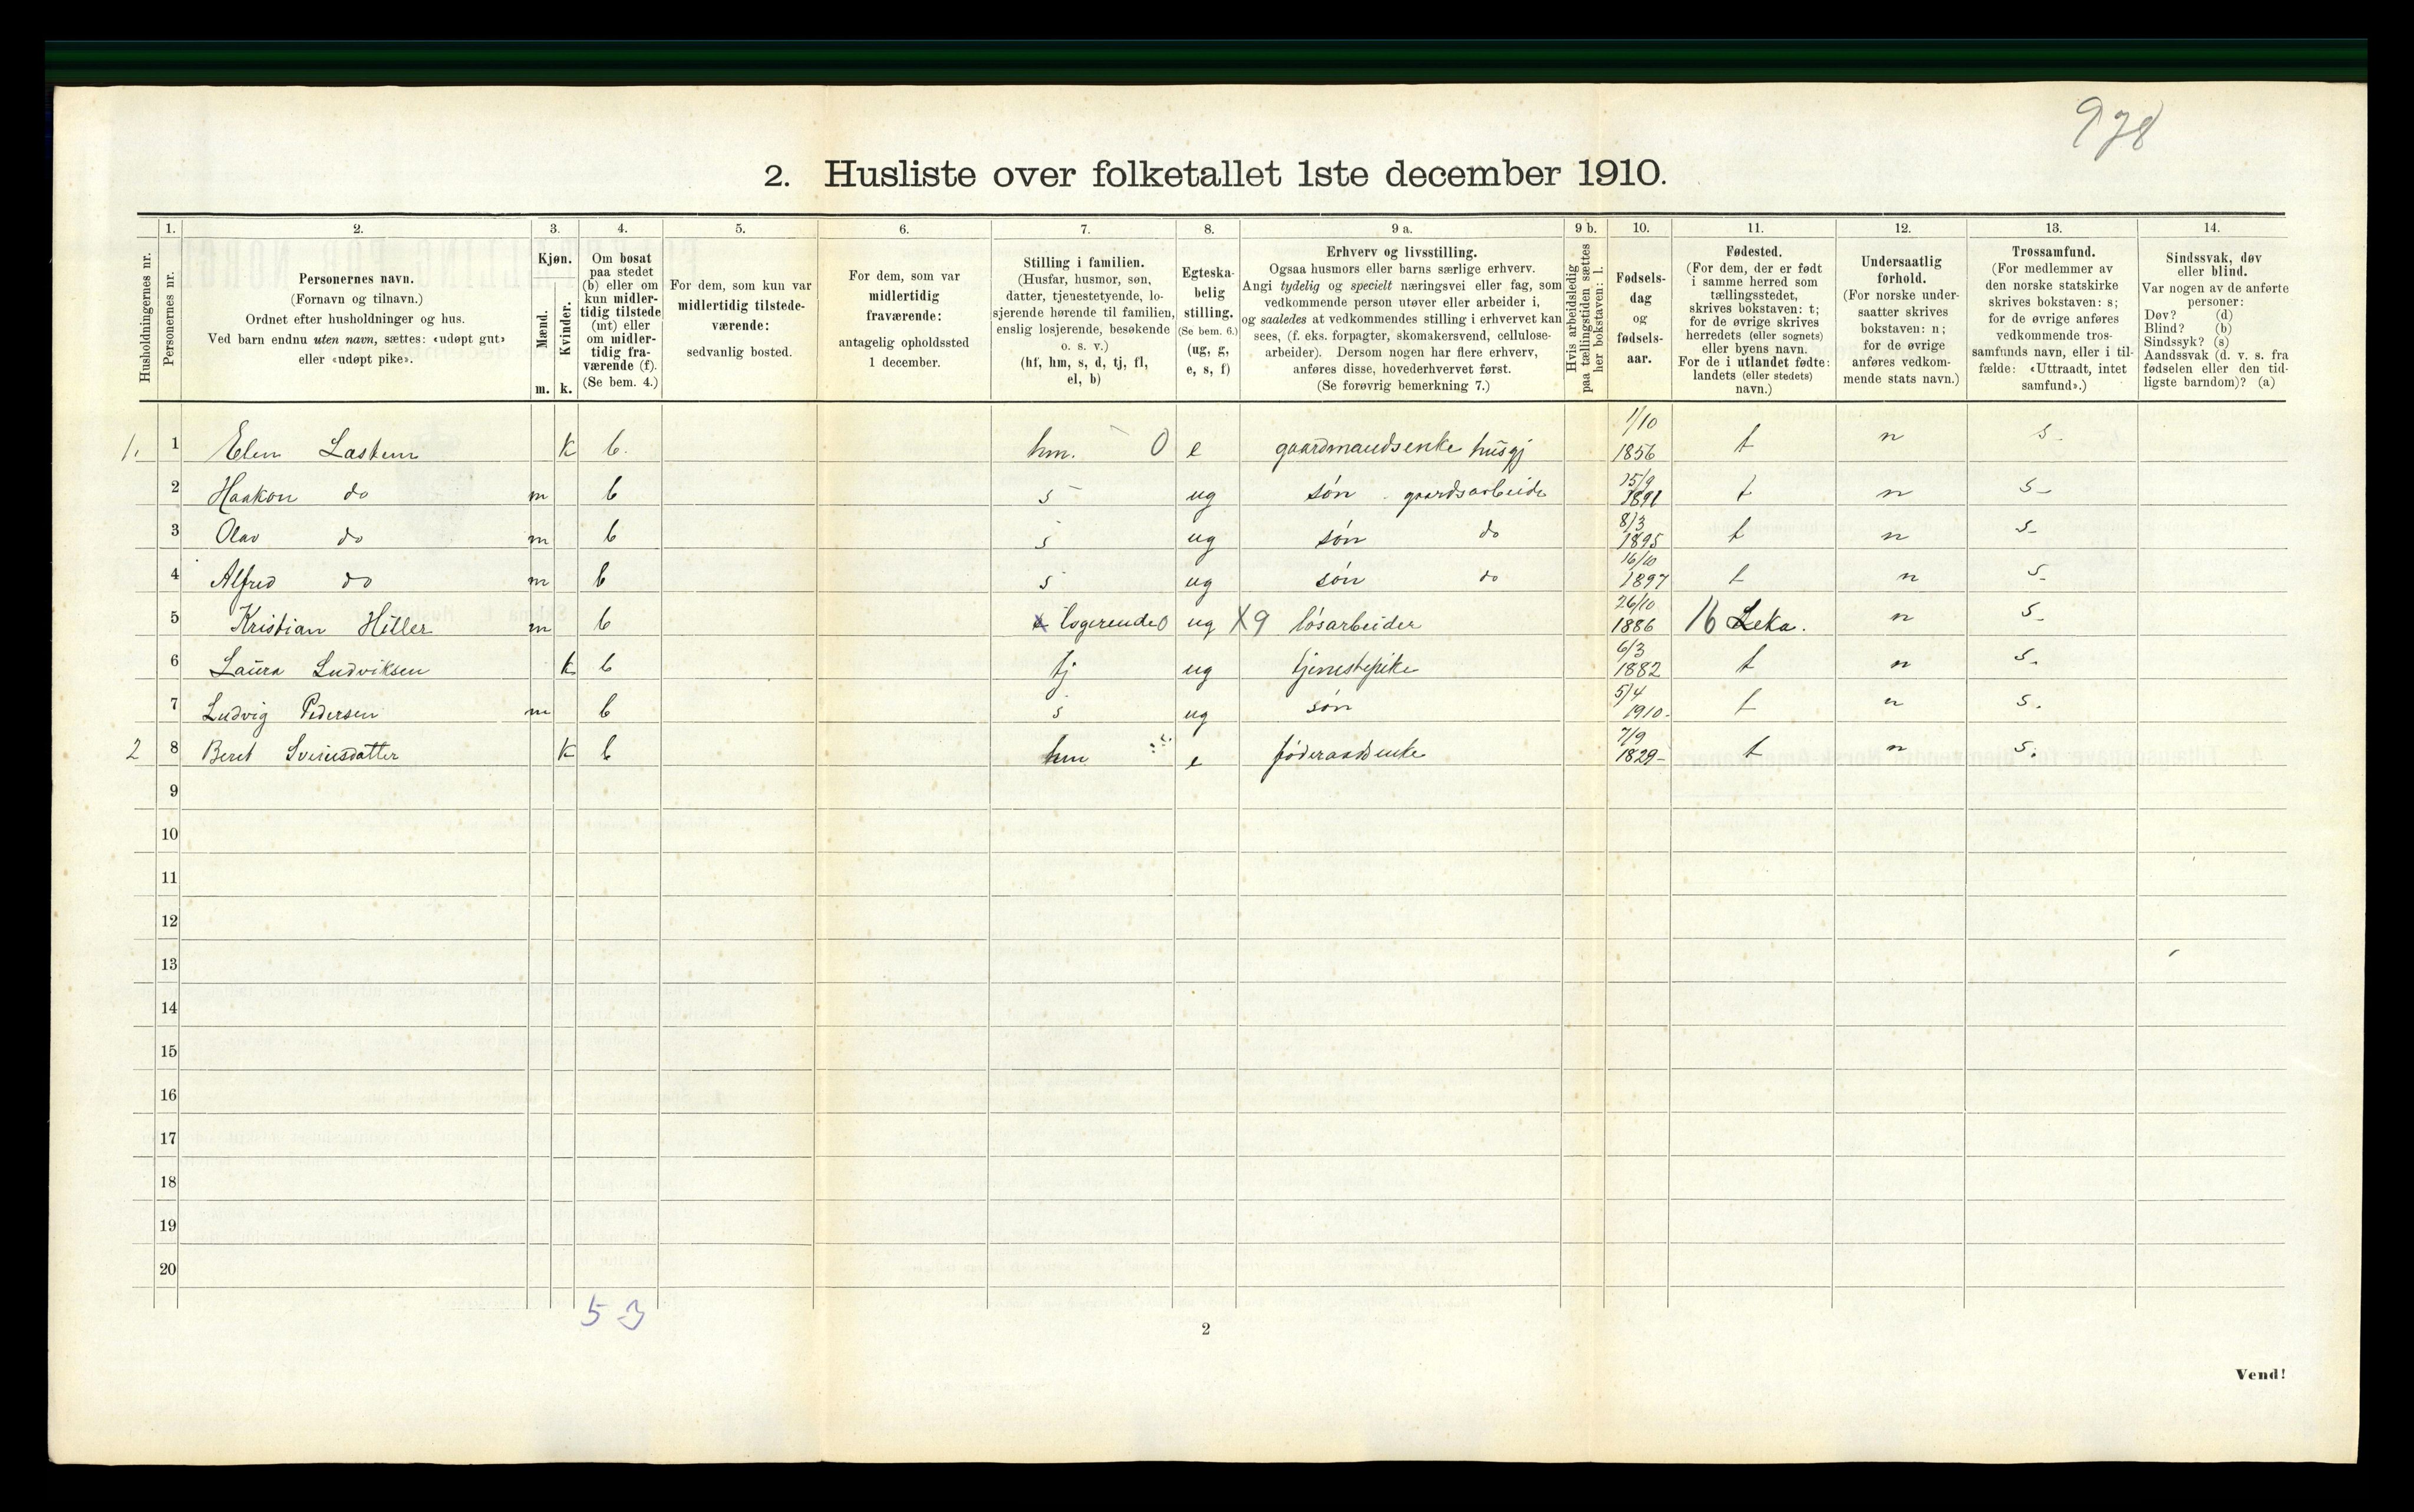 978
2. Husliste over folketallet 1ste december 1910.
Husholdningernes nr.
1.
Personernes nr.
2.
Personernes navn.
(Fornavn og tilnavn.)
Ordnet efter husholdninger og hus.
Ved barn endnu uten navn, sættes: «udøpt gut»
eller «udøpt pike».
3.
Kjøn.
Mænd.
Kvinder.
m. k.
4.
Om bosat
paa stedet
(b) eller om
kun midler-
tidig tilstede
(mt) eller
om midler-
tidig fra-
værende (f).
(Se bem. 4.)
5.
For dem, som kun var
midlertidig tilstede-
værende:
sedvanlig bosted.
6.
For dem, som var
midlertidig
fraværende:
antagelig opholdssted
1 december.
7.
Stilling i familien.
(Husfar, husmor, søn,
datter, tjenestetyende, lo-
sjerende hørende til familien,
enslig losjerende, besøkende
o. s. v.)
(hf, hm, s, d, tj, fl,
el, b)
8.
Egteska-
belig
stilling.
(Se bem. 6.)
(ug, g,
e, s, f)
9 a.
Erhverv og livsstilling.
Ogsaa husmors eller barns særlige erhverv.
Angi tydelig og specielt næringsvei eller fag, som
vedkommende person utøver eller arbeider i,
og saaledes at vedkommendes stilling i erhvervet kan
sees, (f. eks. forpagter, skomakersvend, cellulose-
arbeider). Dersom nogen har flere erhverv,
anføres disse, hovederhvervet først.
(Se forøvrig bemerkning 7.)
9 b.
Hvis arbeidsledig
paa tællingstiden sættes
her bokstaven: l.
10.
Fødsels-
dag
og
fødsels-
aar.
11.
Fødested.
(For dem, der er født
i samme herred som
tællingsstedet,
skrives bokstaven: t;
for de øvrige skrives
herredets (eller sognets)
eller byens navn.
For de i utlandet fødte:
landets (eller stedets)
navn.)
12.
Undersaatlig
forhold.
(For norske under-
saatter skrives
bokstaven: n;
for de øvrige
anføres vedkom-
mende stats navn.)
13.
Trossamfund.
(For medlemmer av
den norske statskirke
skrives bokstaven: s;
for de øvrige anføres
vedkommende tros-
samfunds navn, eller i til-
fælde: «Uttraadt, intet
samfund».)
14.
Sindssvak, døv
eller blind.
Var nogen av de anførte
personer:
Døv? (d)
Blind? (b)
Sindssyk? (s)
Aandssvak (d. v. s. fra
fødselen eller den tid-
ligste barndom)? (a)
1. 1 Elen k b. hm. 0 e gaardmandsenke husgj 1/10 1856 t n s
2 Haakon do m b s ug søn gaardsarbeide 15/9 1891 t n s
3 Olav do m b s ug søn do 8/3 1895 t n s
4 Alfred do m b s ug søn do 16/10 1897 t n s
5 Kristian Hiller m b logerende 0 ug X9 løsarbeider 26/10 1886 16 Leka. n s
6 Laura Ludviksen k b tj ug tjenestepike 6/3 1882 t n s.
7 Ludvig Pedersen m b s ug søn 5/4 1910 t n s.
2 8 Beret k b hm e føderaadsenke 7/9 1829 t n s.
9
10
11
12
13
14
15
16
17
18
19
20
5 3
2
Vend!